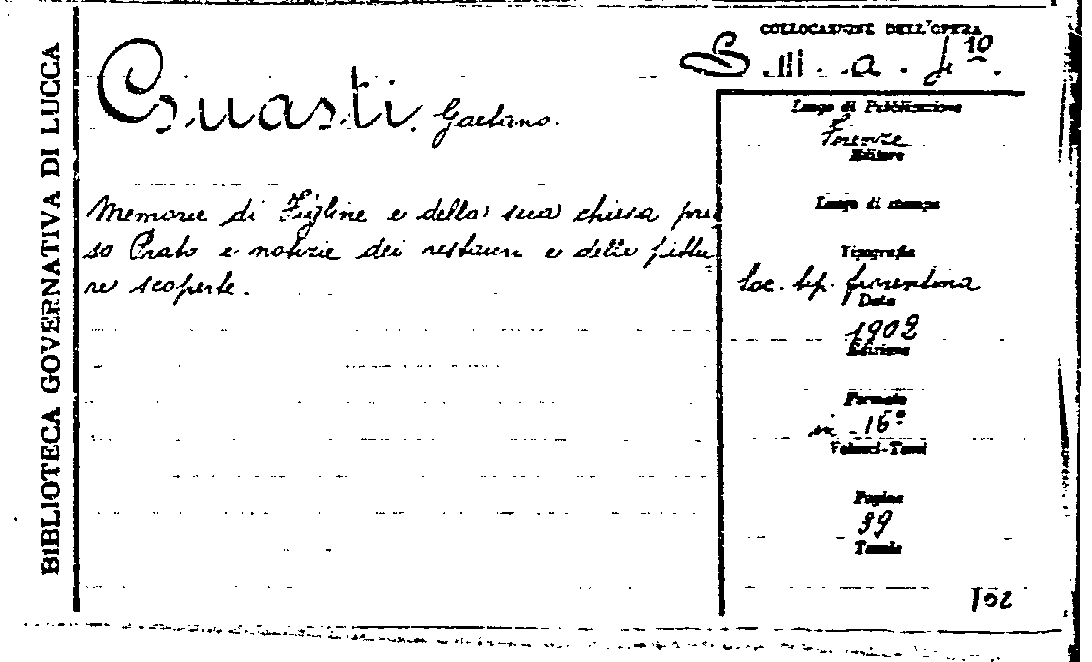 BIBLIOTECA GOVERNATIVA DI LUCCA
Guasti. Gaetano.
Memorie di Figline e della sua chiesa pres
so Prato e notizie dei restauri e delle pittu=
re scoperte.
COLLOCAZIONE DELL'OPERA
III. a. 10.
Luogo di Pubblicazione
Firenze
Editore
Luogo di stampa
Tipografia
Soc. tip. fiorentina
Data
1902
Edizione
Formato
in 16º
Volumi-Tomi
Pagine
39
Tavole
102